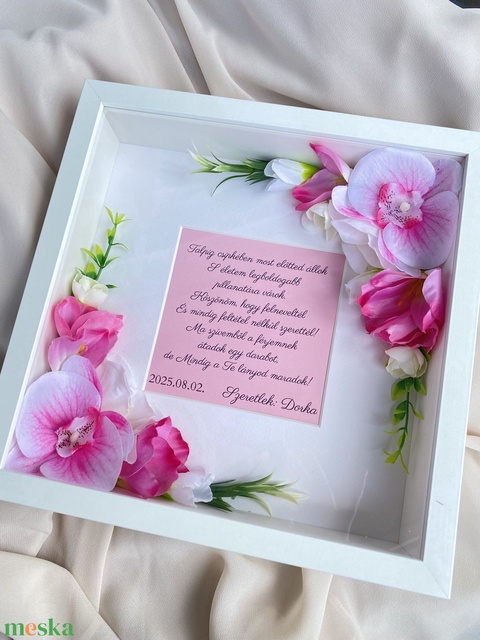 Talpig csipkében most előtted állok
S életem legboldogabb
pillanatára várok.
Köszönöm, hogy felneveltél
És mindig feltétel nélkül szerettél!
Ma szívemből a férjemnek
átadok egy darabot,
de Mindig a Te lányod maradok!
2025.08.02. Szeretlek: Dorka
meska